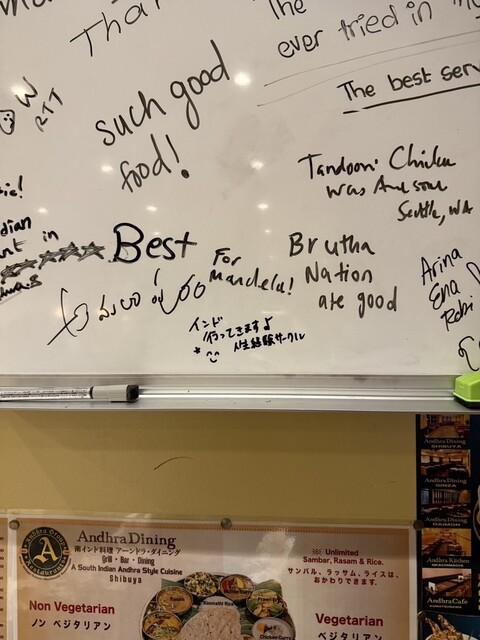 The
ever tried in
such good
food!
The best ser
W
RTT
Tandoori Chicken
was Awesome
Seattle, WA
in
Best
For
Mandela!
Brutha
Nation
ate good
Arina
Ena
インド
行ってきますよ
人生経験サークル
AndhraDining
SHIBUYA
AndhraDining
GINZA
AndhraDining
AndhraKitchen
AndhraCafe
AndhraDining
南インド料理 アーンドラ・ダイニング
Grill・Bar・Dining
A South Indian Andhra Style Cuisine
Shibuya
A
※ Unlimited
Sambar, Rasam & Rice.
サンバル、ラッサム、ライスは、
おかわりできます。
Non Vegetarian
ノン ベジタリアン
Vegetarian
ベジタリアン
Basmathi Rice
Chicken Curry